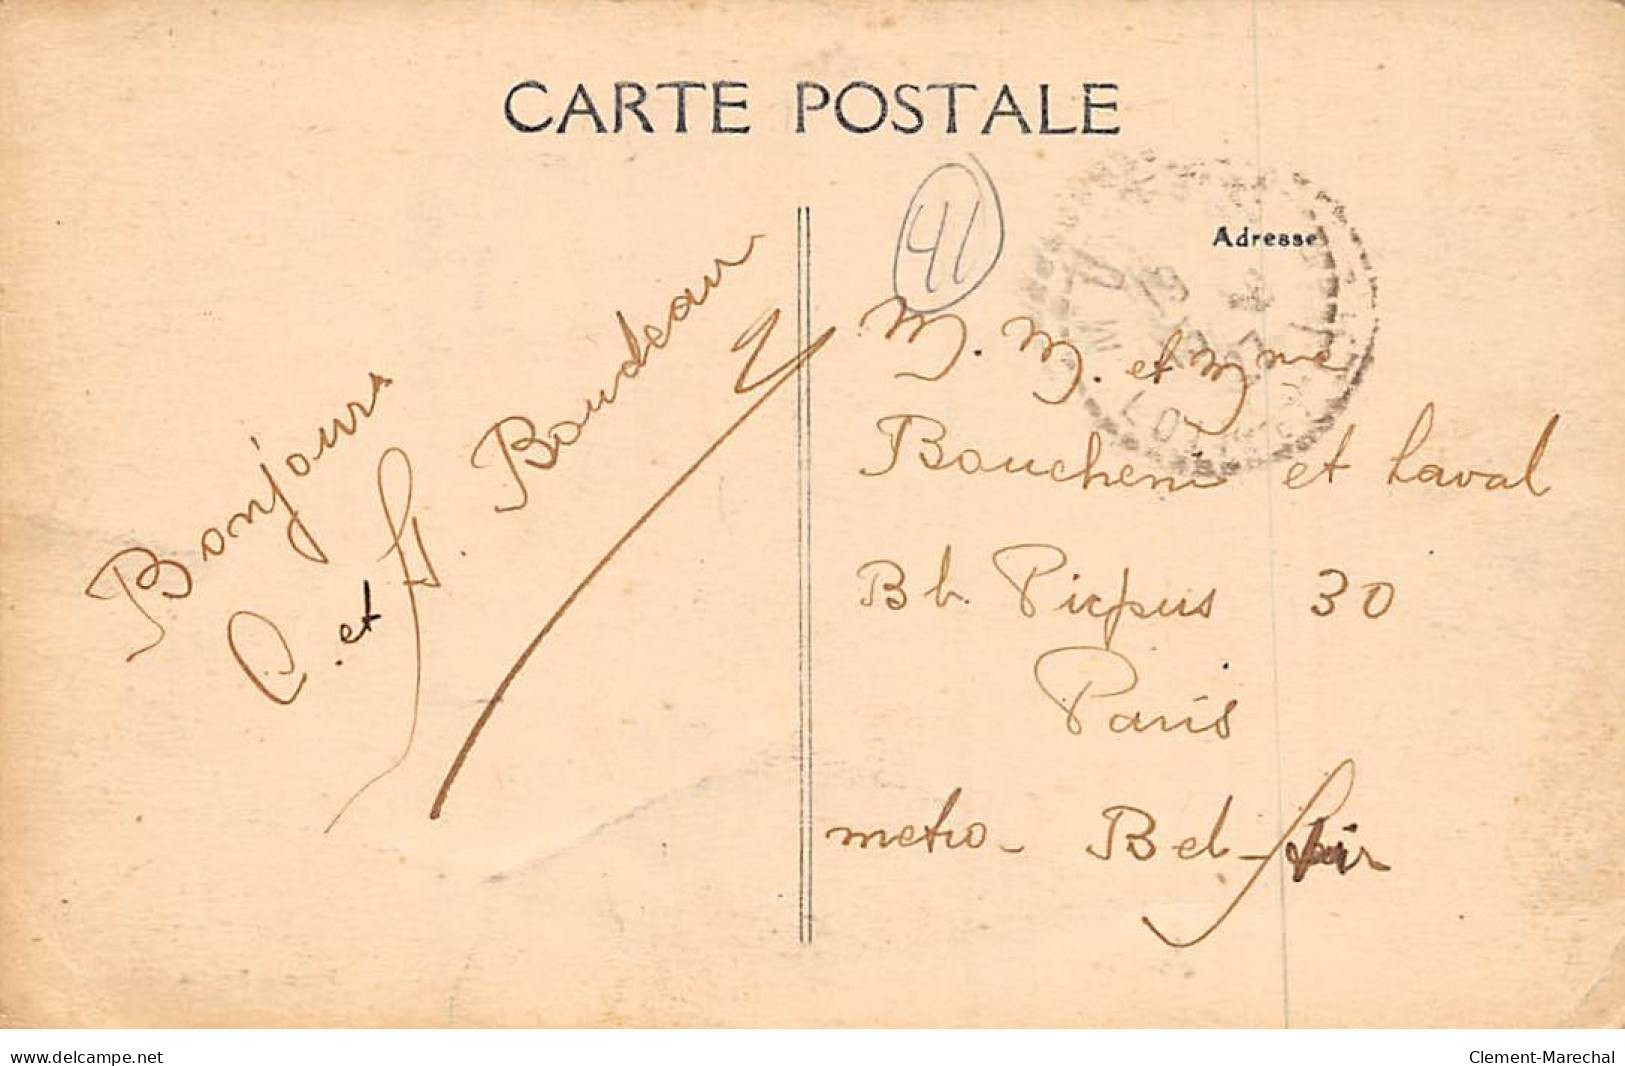 CARTE POSTALE
41
Adresse
Bonjours
C. et G. Boudeau
M. M. et Mme
Bouchem et Laval
Bd. Picpus 30
Paris
metro - Bel-Air
delcampe.net
Clement-Marechal